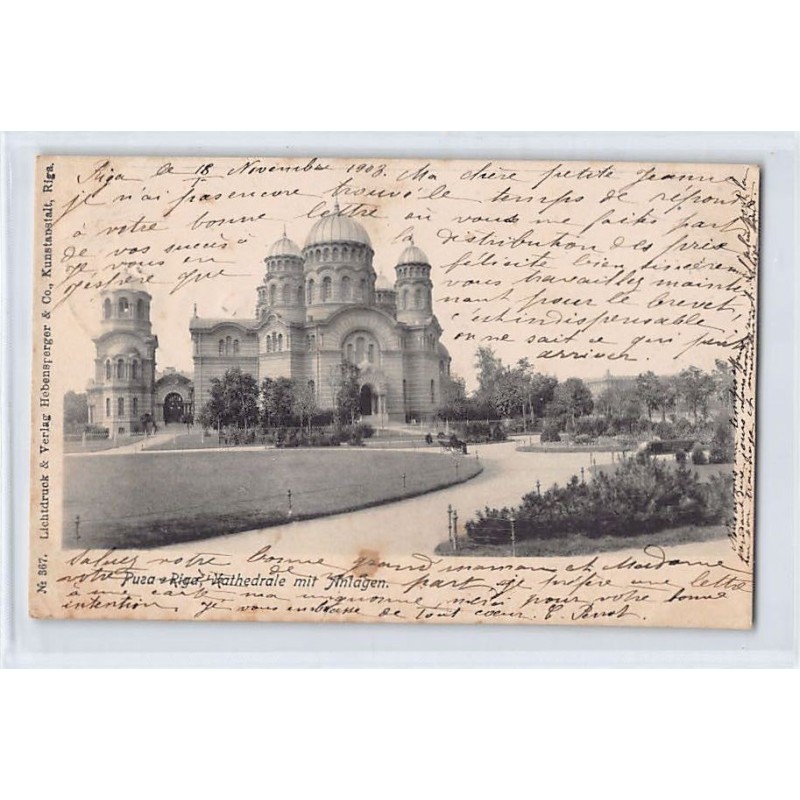 Riga le 18 Novembre 1903. Ma chère petite Jeanne
je n'ai pas encore trouvé le temps de répondre
à votre bonne lettre où vous me faites part
de vos succès à la distribution des prix
Je vous en félicite bien sincèrement
j'espère que vous travaillez mainte
nant pour le brevet,
c'est indispensable
on ne sait ce qui peut
arriver.
Saluez votre bonne grand maman et Madame
votre de ma part je préfère une lettre
à une carte ma mignonne, merci pour votre bonne
intention, je vous embrasse de tout cœur. C. Perrot
Рига - Riga, Kathedrale mit Anlagen.
№ 367. Lichtdruck & Verlag Hebensperger & Co., Kunstanstalt, Riga.